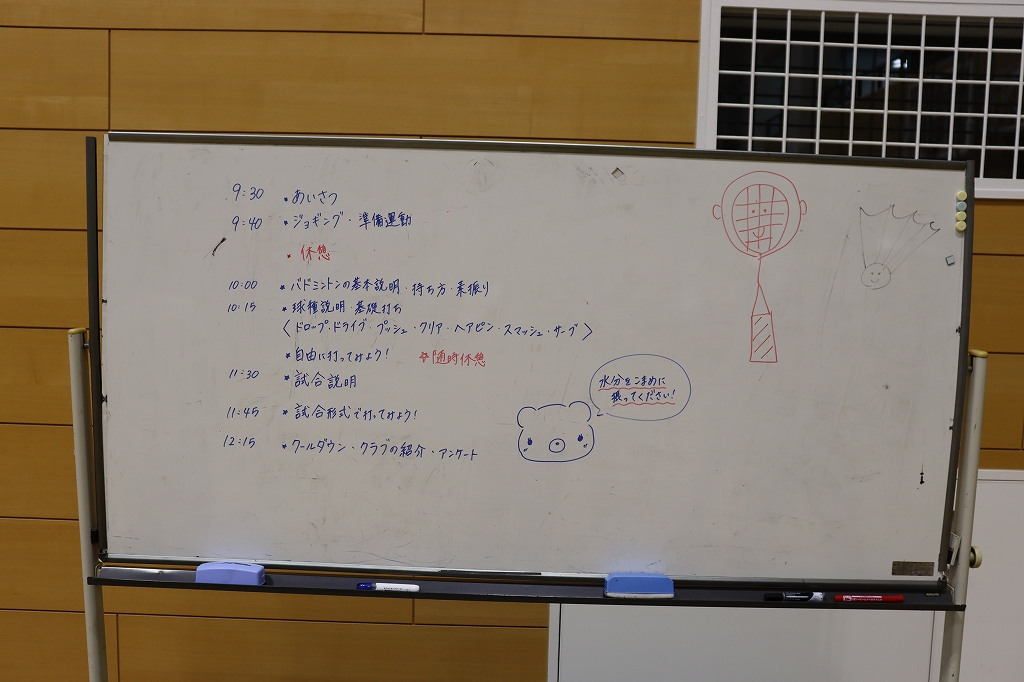 9:30 *あいさつ
9:40 *ジョギング・準備運動
*休憩
10:00 *バドミントンの基本説明・持ち方・素振り
10:15 *球種説明・基礎打ち
〈ドロップ・ドライブ・プッシュ・クリア・ヘアピン・スマッシュ・サーブ〉
*自由に打ってみよう! ☆随時休憩
11:30 *試合説明
11:45 *試合形式で打ってみよう!
12:15 *クールダウン・クラブの紹介・アンケート
水分をこまめに
摂ってください!